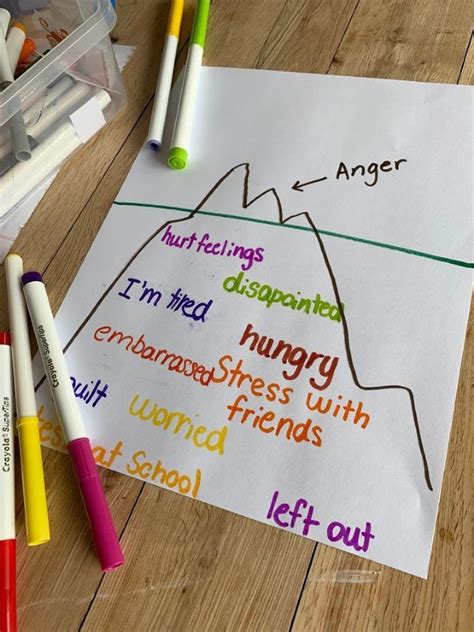 Anger
hurt feelings
disapainted
I'm tired
hungry
embarrassed
Stress with
friends
worried
at School
left out
Crayola SuperTips
Crayola SuperTips